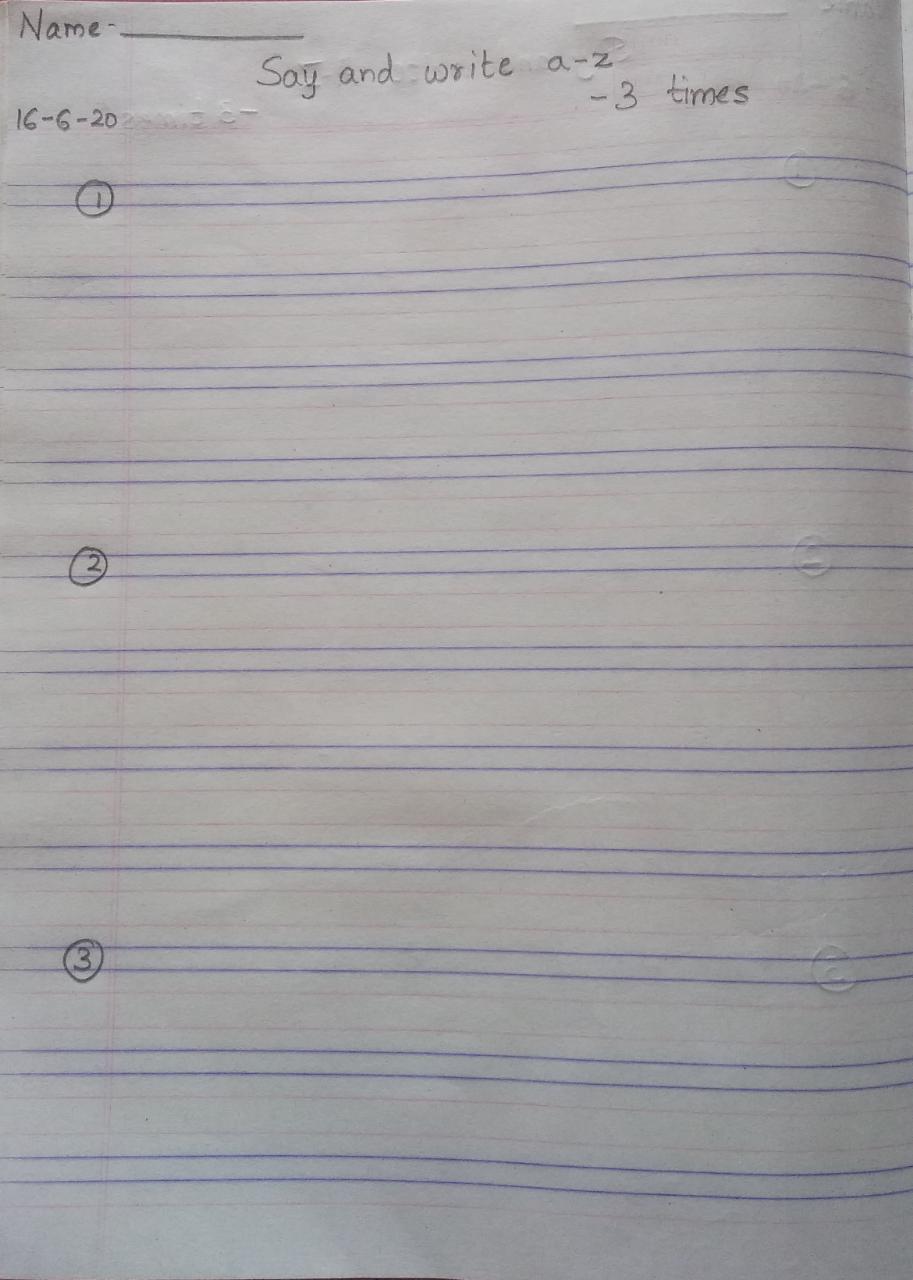 Name-__________
Say and write a-z
-3 times
16-6-20
1
2
3